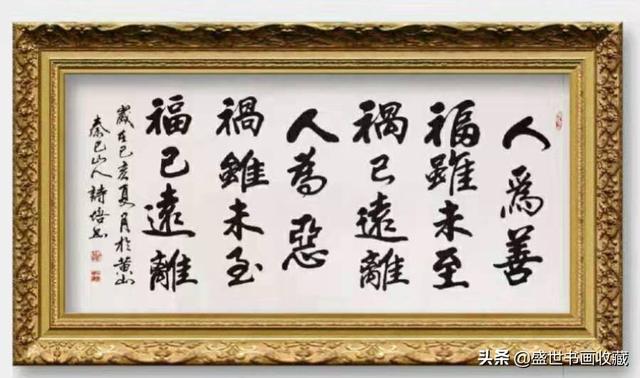 人爲善
福雖未至
禍已遠離
人為惡
禍雖未至
福已遠離
歲在己亥夏月於黄山
秦巴山人詩培书
头条 @盛世书画收藏